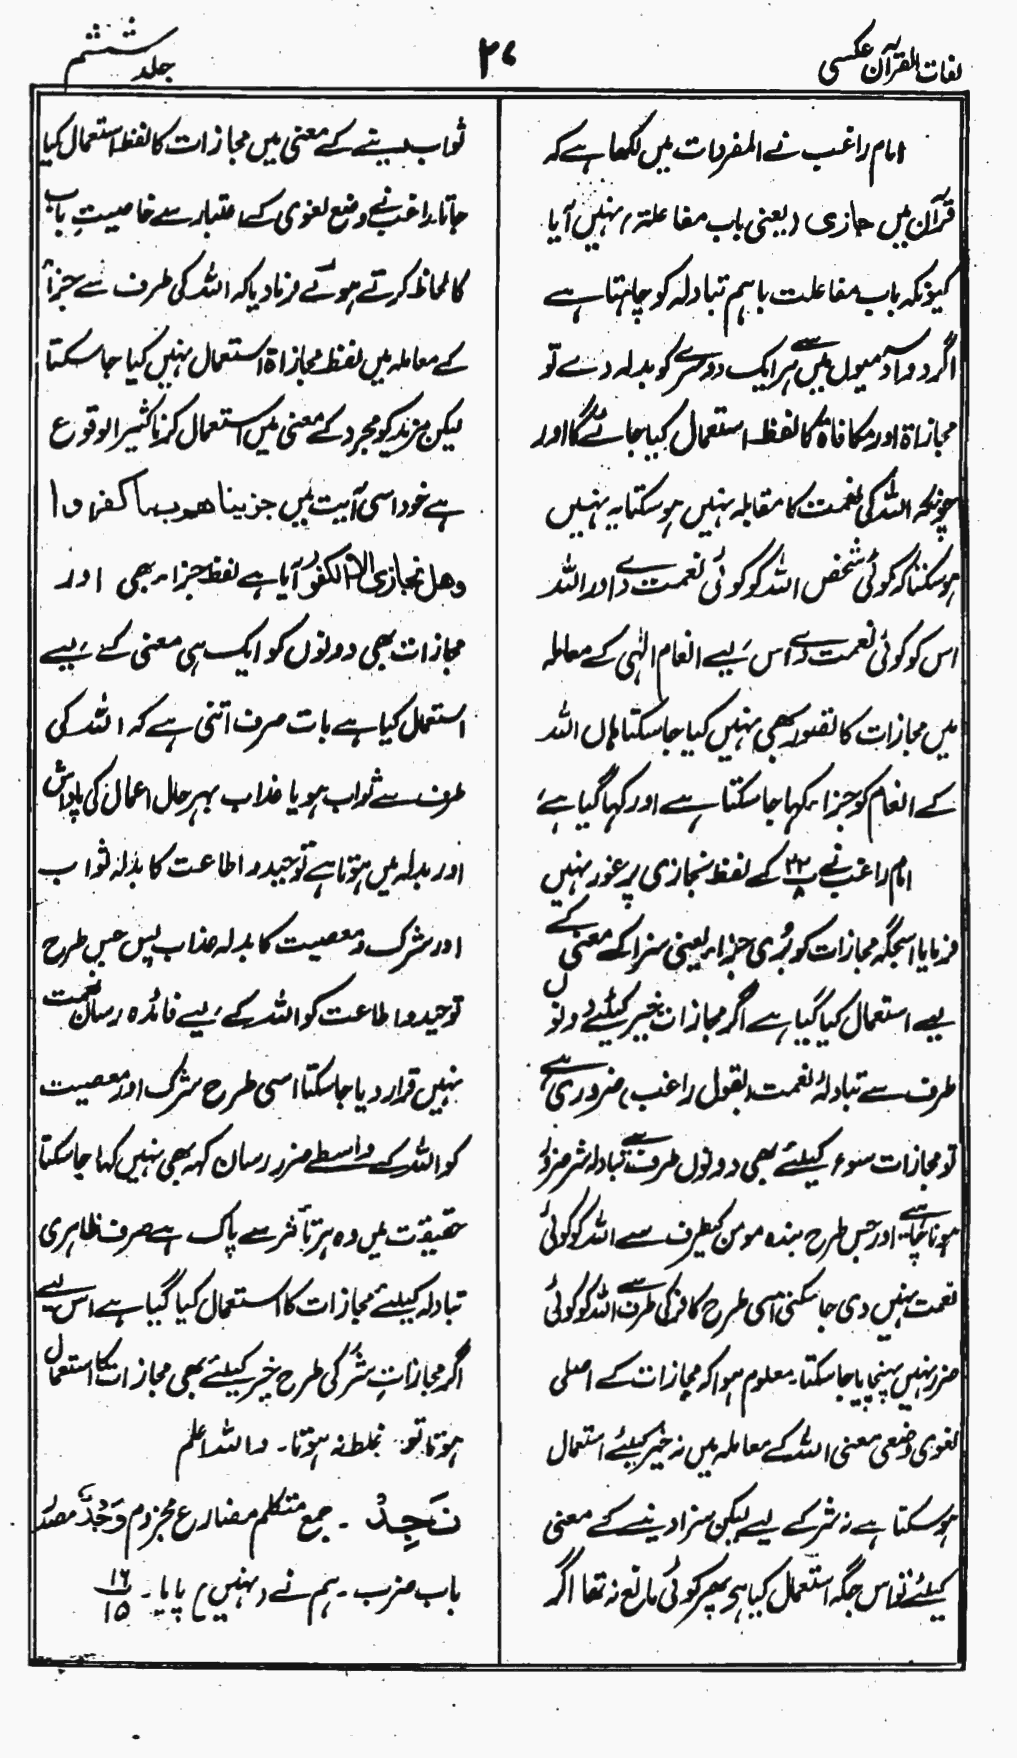 لغات القرآن عکسی
۲۷
جلد ششم
امام راغب نے المفردات میں لکھا ہے کہ
قرآن میں جازی (یعنی باب مفاعلۃ) نہیں آیا
کیونکہ باب مفاعلت باہم تبادلہ کو چاہتا ہے
اگر دو آدمیوں میں سے ہر ایک دوسرے کو بدلہ دے تو
مجازاۃ اور مکافاۃ کا لفظ استعمال کیا جائے گا اور
چونکہ اللہ کی نعمت کا مقابلہ نہیں ہو سکتا یہ نہیں
ہو سکتا کہ کوئی شخص اللہ کو کوئی نعمت دے اور اللہ
اس کو کوئی نعمت دے اس لیے انعام الٰہی کے معاملہ
میں مجازات کا تصور بھی نہیں کیا جا سکتا ہاں اللہ
کے انعام کو جزاء کہا جا سکتا ہے اور کہا گیا ہے
امام راغب نے پ۲۲/۸ کے لفظ نجازی پر غور نہیں
فرمایا اسجگہ مجازات کو بُری جزاء یعنی سزا کے معنی کے
لیے استعمال کیا گیا ہے اگر مجازات خیر کیلئے دونوں
طرف سے تبادلۂ نعمت (بقول راغب) ضروری ہے
تو مجازات سوء کیلئے بھی دونوں طرف سے تبادلہ شر ضرور
ہونا چاہیے اور جس طرح بندہ مومن کیطرف سے اللہ کو کوئی
نعمت نہیں دی جا سکتی اسی طرح کافر کی طرف سے اللہ کو کوئی
ضرر نہیں پہنچایا جا سکتا۔ معلوم ہوا کہ مجازات کے اصلی
لغوی وضعی معنی اللہ کے معاملہ میں نہ خیر کیلئے استعمال
ہو سکتا ہے نہ شر کے لیے لیکن سزا دینے کے معنی
کیلئے تو اس جگہ استعمال کیا ہی پھر کوئی مانع نہ تھا اگر
ثواب دینے کے معنی میں مجازات کا لفظ استعمال کیا
جاتا۔ راغب نے وضع لغوی کے اعتبار سے خاصیتِ باب
کا لحاظ کرتے ہوئے فرما دیا کہ اللہ کی طرف سے جزاء
کے معاملہ میں لفظ مجازاۃ استعمال نہیں کیا جا سکتا
لیکن مزید کو مجرد کے معنی میں استعمال کرنا کثیر الوقوع
ہے خود اسی آیت میں جزینا ھم بما کفروا
وھل نجازی الا الکفور آیا ہے لفظ جزاء بھی اور
مجازات بھی دونوں کو ایک ہی معنی کے لیے
استعمال کیا ہے بات صرف اتنی ہے کہ اللہ کی
طرف سے ثواب ہو یا عذاب بہر حال اعمال کی پاداش
اور بدلہ میں ہوتا ہے توحید و اطاعت کا بدلہ ثواب
اور شرک و معصیت کا بدلہ عذاب پس جس طرح
توحید و اطاعت کو اللہ کے لیے فائدہ رساں نعمت
نہیں قرار دیا جا سکتا اسی طرح شرک اور معصیت
کو اللہ کے واسطے ضرر رساں کہہ بھی نہیں کہا جا سکتا
حقیقت میں وہ ہر تأثر سے پاک ہے صرف ظاہری
تبادلہ کیلئے مجازات کا استعمال کیا گیا ہے اس لیے
اگر مجازاتِ شر کی طرح خیر کیلئے بھی مجازات کا استعمال
ہوتا تو غلط نہ ہوتا۔ واللہ اعلم
نَجِدْ ۔ جمع متکلم مضارع مجزوم وَجْدٌ مصدر
باب ضرب ۔ ہم نے (نہیں) پایا۔ ۱۶/۱۵